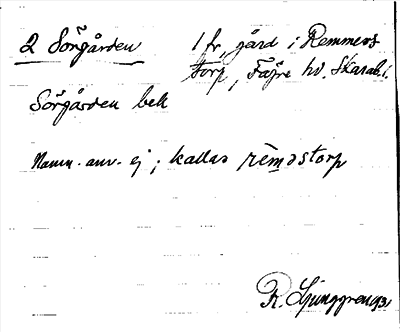 2 Sörgården 1 fr. gård i Remmers
torp, Fägre hd. Skarab. l.
Sörgården bek
Namn. anv. ej ; kallas remstorp
R. Ljunggren